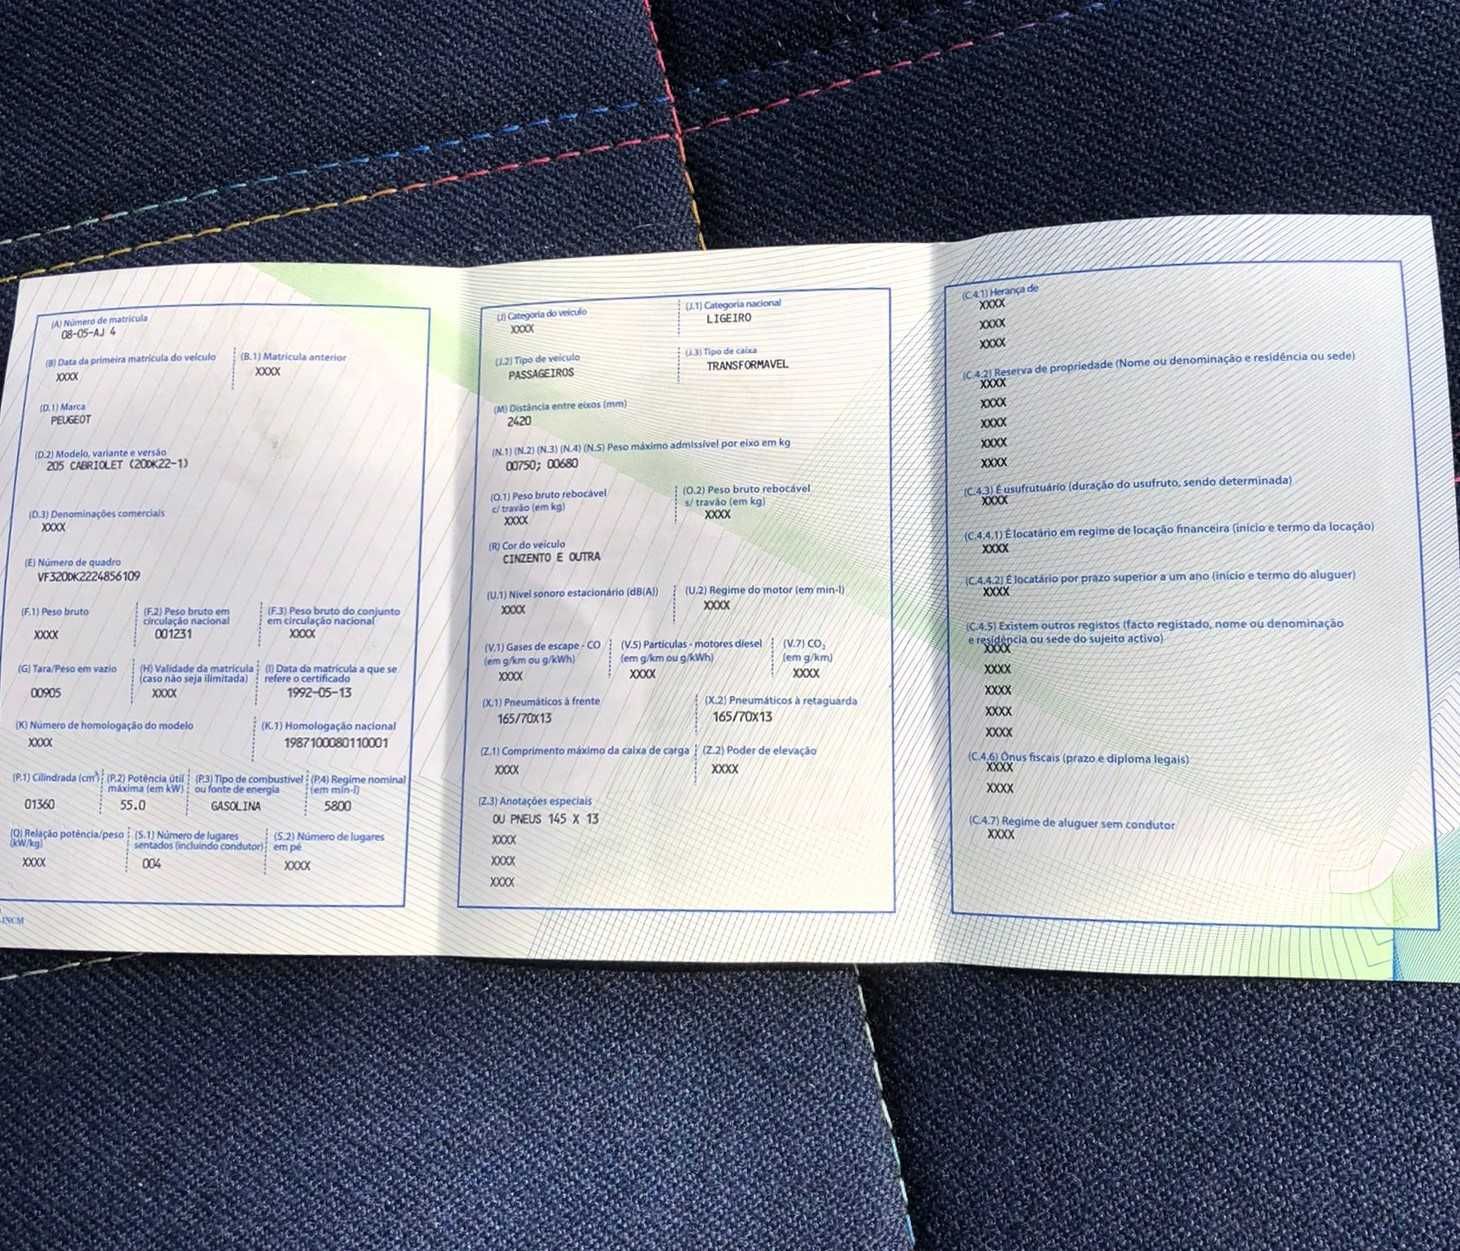 (A) Número de matrícula
08-05-AJ 4
(B) Data da primeira matrícula do veículo
XXXX
(B.1) Matrícula anterior
XXXX
(D.1) Marca
PEUGEOT
(D.2) Modelo, variante e versão
205 CABRIOLET (20DK22-1)
(D.3) Denominações comerciais
XXXX
(E) Número de quadro
VF320DK2224856109
(F.1) Peso bruto
XXXX
(F.2) Peso bruto em
circulação nacional
001231
(F.3) Peso bruto do conjunto
em circulação nacional
XXXX
(G) Tara/Peso em vazio
00905
(H) Validade da matrícula
(caso não seja ilimitada)
XXXX
(I) Data da matrícula a que se
refere o certificado
1992-05-13
(K) Número de homologação do modelo
XXXX
(K.1) Homologação nacional
1987100080110001
(P.1) Cilindrada (cm³)
01360
(P.2) Potência útil
máxima (em kW)
55.0
(P.3) Tipo de combustível
ou fonte de energia
GASOLINA
(P.4) Regime nominal
(em min-l)
5800
(Q) Relação potência/peso
(kW/kg)
XXXX
(S.1) Número de lugares
sentados (incluindo condutor)
004
(S.2) Número de lugares
em pé
XXXX
INCM
(J) Categoria do veículo
XXXX
(J.1) Categoria nacional
LIGEIRO
(J.2) Tipo de veículo
PASSAGEIROS
(J.3) Tipo de caixa
TRANSFORMAVEL
(M) Distância entre eixos (mm)
2420
(N.1) (N.2) (N.3) (N.4) (N.5) Peso máximo admissível por eixo em kg
00750; 00680
(O.1) Peso bruto rebocável
c/ travão (em kg)
XXXX
(O.2) Peso bruto rebocável
s/ travão (em kg)
XXXX
(R) Cor do veículo
CINZENTO E OUTRA
(U.1) Nível sonoro estacionário (dB(A))
XXXX
(U.2) Regime do motor (em min-l)
XXXX
(V.1) Gases de escape - CO
(em g/km ou g/kWh)
XXXX
(V.5) Partículas - motores diesel
(em g/km ou g/kWh)
XXXX
(V.7) CO₂
(em g/km)
XXXX
(X.1) Pneumáticos à frente
165/70X13
(X.2) Pneumáticos à retaguarda
165/70X13
(Z.1) Comprimento máximo da caixa de carga
XXXX
(Z.2) Poder de elevação
XXXX
(Z.3) Anotações especiais
OU PNEUS 145 X 13
XXXX
XXXX
XXXX
(C.4.1) Herança de
XXXX
XXXX
XXXX
(C.4.2) Reserva de propriedade (Nome ou denominação e residência ou sede)
XXXX
XXXX
XXXX
XXXX
XXXX
(C.4.3) É usufrutuário (duração do usufruto, sendo determinada)
XXXX
(C.4.4.1) É locatário em regime de locação financeira (início e termo da locação)
XXXX
(C.4.4.2) É locatário por prazo superior a um ano (início e termo do aluguer)
XXXX
(C.4.5) Existem outros registos (facto registado, nome ou denominação
e residência ou sede do sujeito activo)
XXXX
XXXX
XXXX
XXXX
XXXX
(C.4.6) Ónus fiscais (prazo e diploma legais)
XXXX
XXXX
(C.4.7) Regime de aluguer sem condutor
XXXX